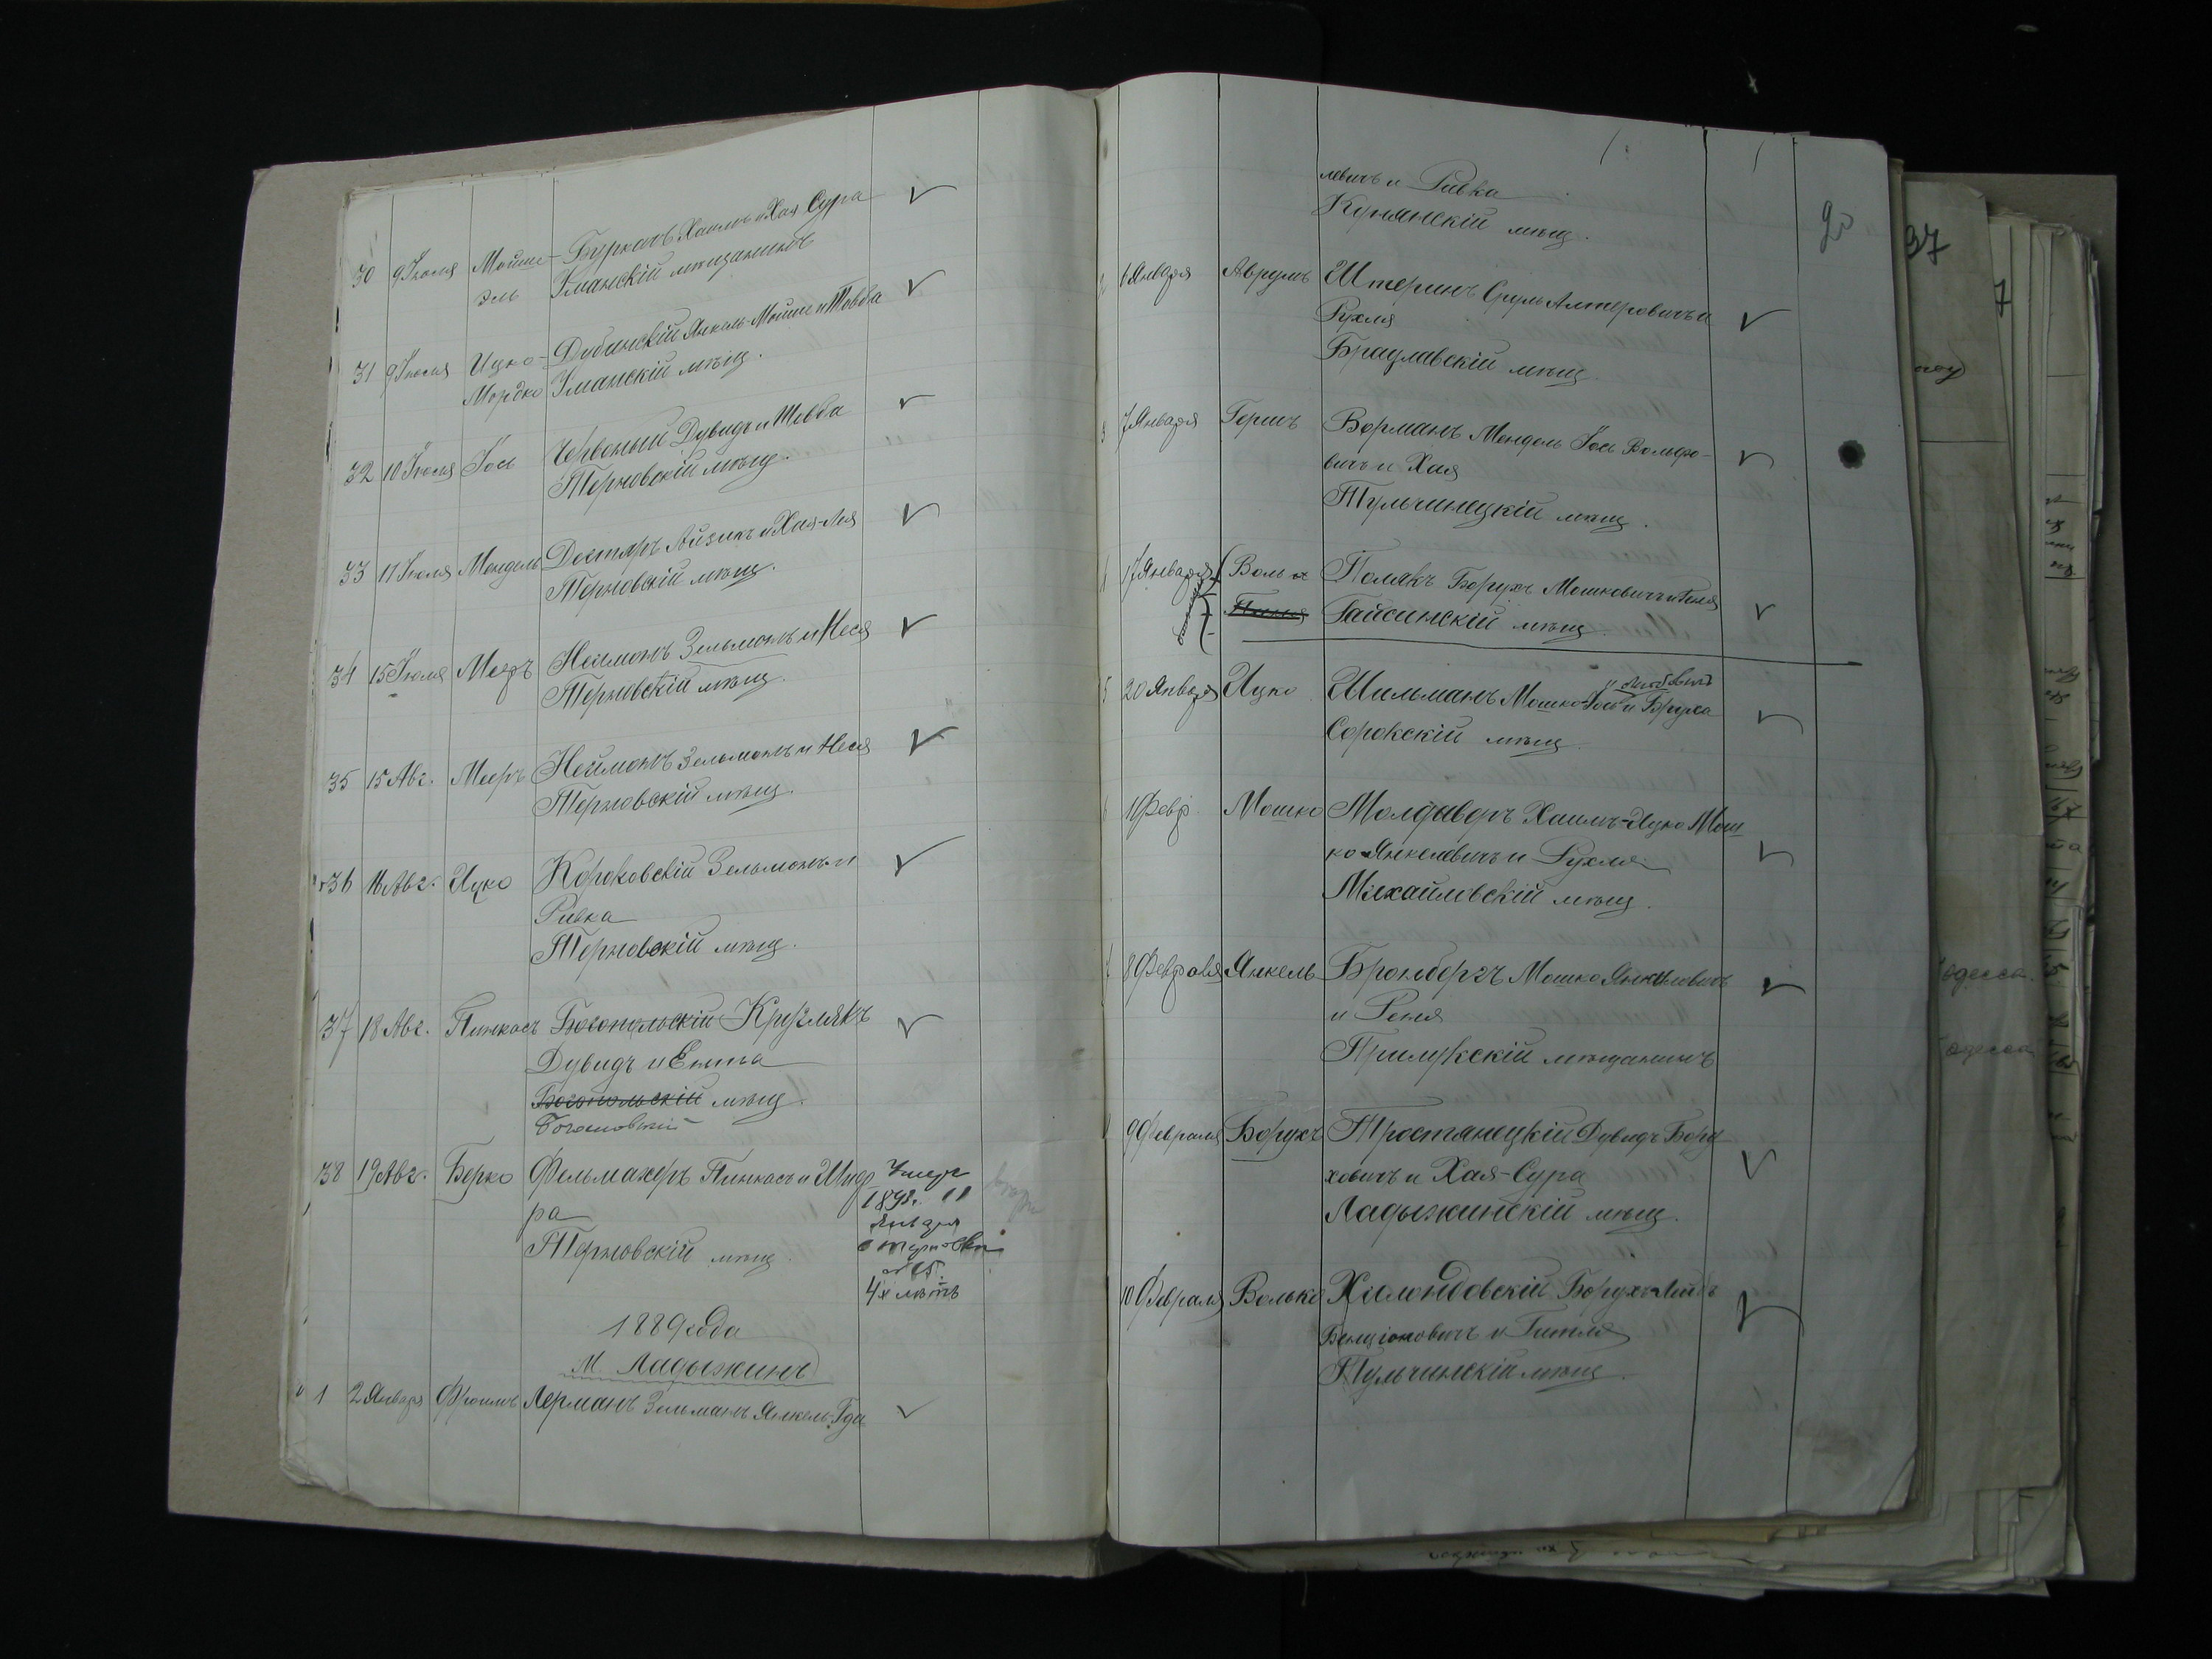 30 9 Іюля Мойше- Бурканъ Хаимъ и Хая Сура
эль Уманскій мѣщанинъ
31 9 Іюля Ицко- Дубинскій Янкель-Мойше и Товба
Мордко Уманскій мѣщ.
32 10 Іюля Іось Червоный Дувидъ и Товба
Терновскій мѣщ.
33 11 Іюля Мендель Дехтяръ Айзикъ и Хая-Лея
Терновскій мѣщ.
34 15 Іюля Мееръ Неймонъ Зельмонъ и Неся
Терновскій мѣщ.
35 15 Авг. Мееръ Неймонъ Зельмонъ и Неся
Терновскій мѣщ.
36 16 Авг. Ицко Короковскій Зельмонъ и
Ривка
Терновскій мѣщ.
37 18 Авг. Пинкасъ Богопольскій Круглякъ
Дувидъ и Ента
Богопольскій мѣщ.
38 19 Авг. Берко Фельмахеръ Пинкасъ и Шид
ра
Терновскій мѣщ.
Умеръ
1893. 11
Января
4х лѣтъ
1889 года
М. Ладыжинъ
1 2 Января Фроимъ Лерманъ Зельманъ Янкель-Гди
20
левичъ и Ривка
Кунянскій мѣщ.
2 6 Января Аврумъ Штеринъ Сруль Алтеровичъ и
Рухля
Брацлавскій мѣщ.
3 7 Января Гершъ Ворманъ Мендель Іось Вольфо-
вичъ и Хая
Тульчинецкій мѣщ.
17 Января Воль Полякъ Борухъ Мошковичъ и Геня
Гайсинскій мѣщ.
5 20 Января Ицко Шильманъ Мошко-Іось и Бруха
Сорокскій мѣщ.
Февр. Мошко Молдаверъ Хаимъ-Ицко Мош
ко-Янкелевичъ и Рухля
Михайловскій мѣщ.
8 Февраля Янкель Бронбергъ Мошко Янкелевичъ
и Геня
Прилукскій мѣщанинъ
9 Февраля Борухъ Тростянецкій Дувидъ Бору
ховичъ и Хая-Сура
Ладыжинскій мѣщ.
10 Февраля Волько Борухъ-Лейбъ
Бенціоновичъ и Гитля
Тульчинскій мѣщ.
37
7
одесса.
одесса